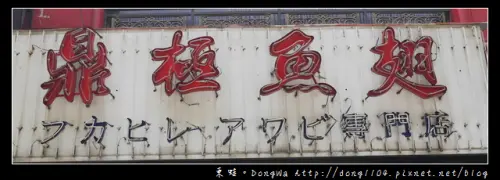 鼎極魚翅
フカヒレアワビ專門店
東蛙。DongWa http://dong1104.pixnet.net/blog